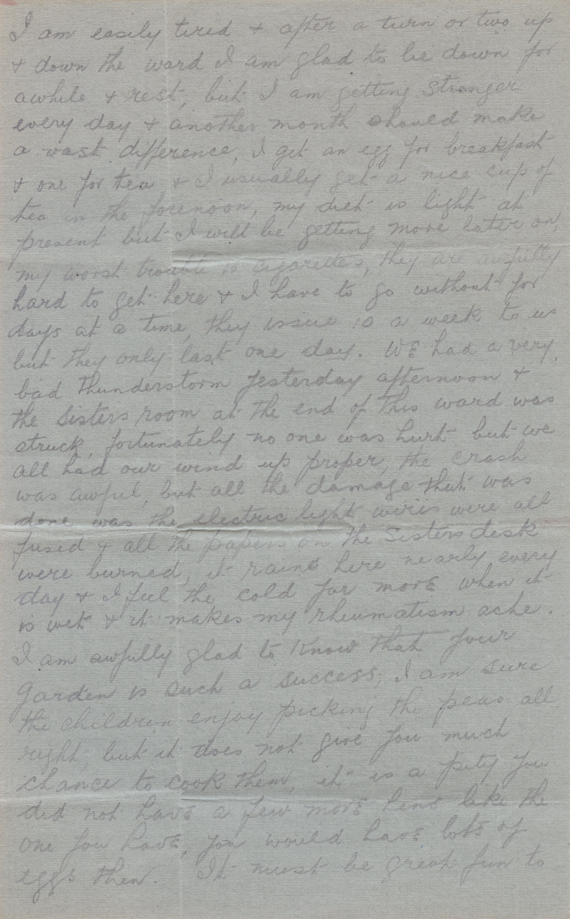 I am easily tired & after a turn or two up
& down the ward I am glad to lie down for
awhile & rest, but I am getting stronger
every day & another month should make
a vast difference, I get an egg for breakfast
& one for tea & I usually get a nice cup of
tea in the forenoon, my diet is light at
present but I will be getting more later on,
my worst trouble is cigarettes, they are awfully
hard to get here & I have to go without for
days at a time they issue 10 a week to us
but they only last one day. We had a very
bad thunderstorm yesterday afternoon &
the Sisters room at the end of this ward was
struck, fortunately no one was hurt but we
all had our wind up proper, the crash
was awful, but all the damage that was
done was the electric light wires were all
fused & all the papers on the Sisters desk
were burned, it rains here nearly every
day & I feel the cold far more when it
is wet & it makes my rheumatism ache.
I am awfully glad to know that your
garden is such a success, I am sure
the children enjoy picking the peas all
right, but it does not give you much
chance to cook them, it is a pity you
did not have a few more hens like the
one you have, you would have lots of
eggs then. It must be great fun to